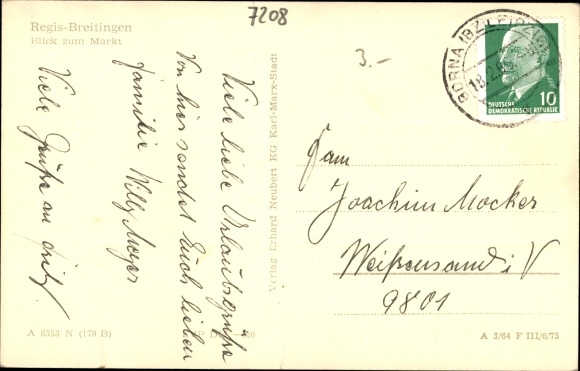 7208
Regis-Breitingen
Blick zum Markt
3.-
Viele liebe Urlaubsgrüße
Von hier sendet Euch lieben
Familie Willy Meyer
Viele Grüße an
Verlag Erhard Neubert KG Karl-Marx-Stadt
BORNA (BZ. LEIPZIG)
18.2.65
10
DEUTSCHE
DEMOKRATISCHE REPUBLIK
Fam
Joachim Mocker
Weißensand i. V
9801
A 3553 N (170 B)
A 3/64 F III/6/75